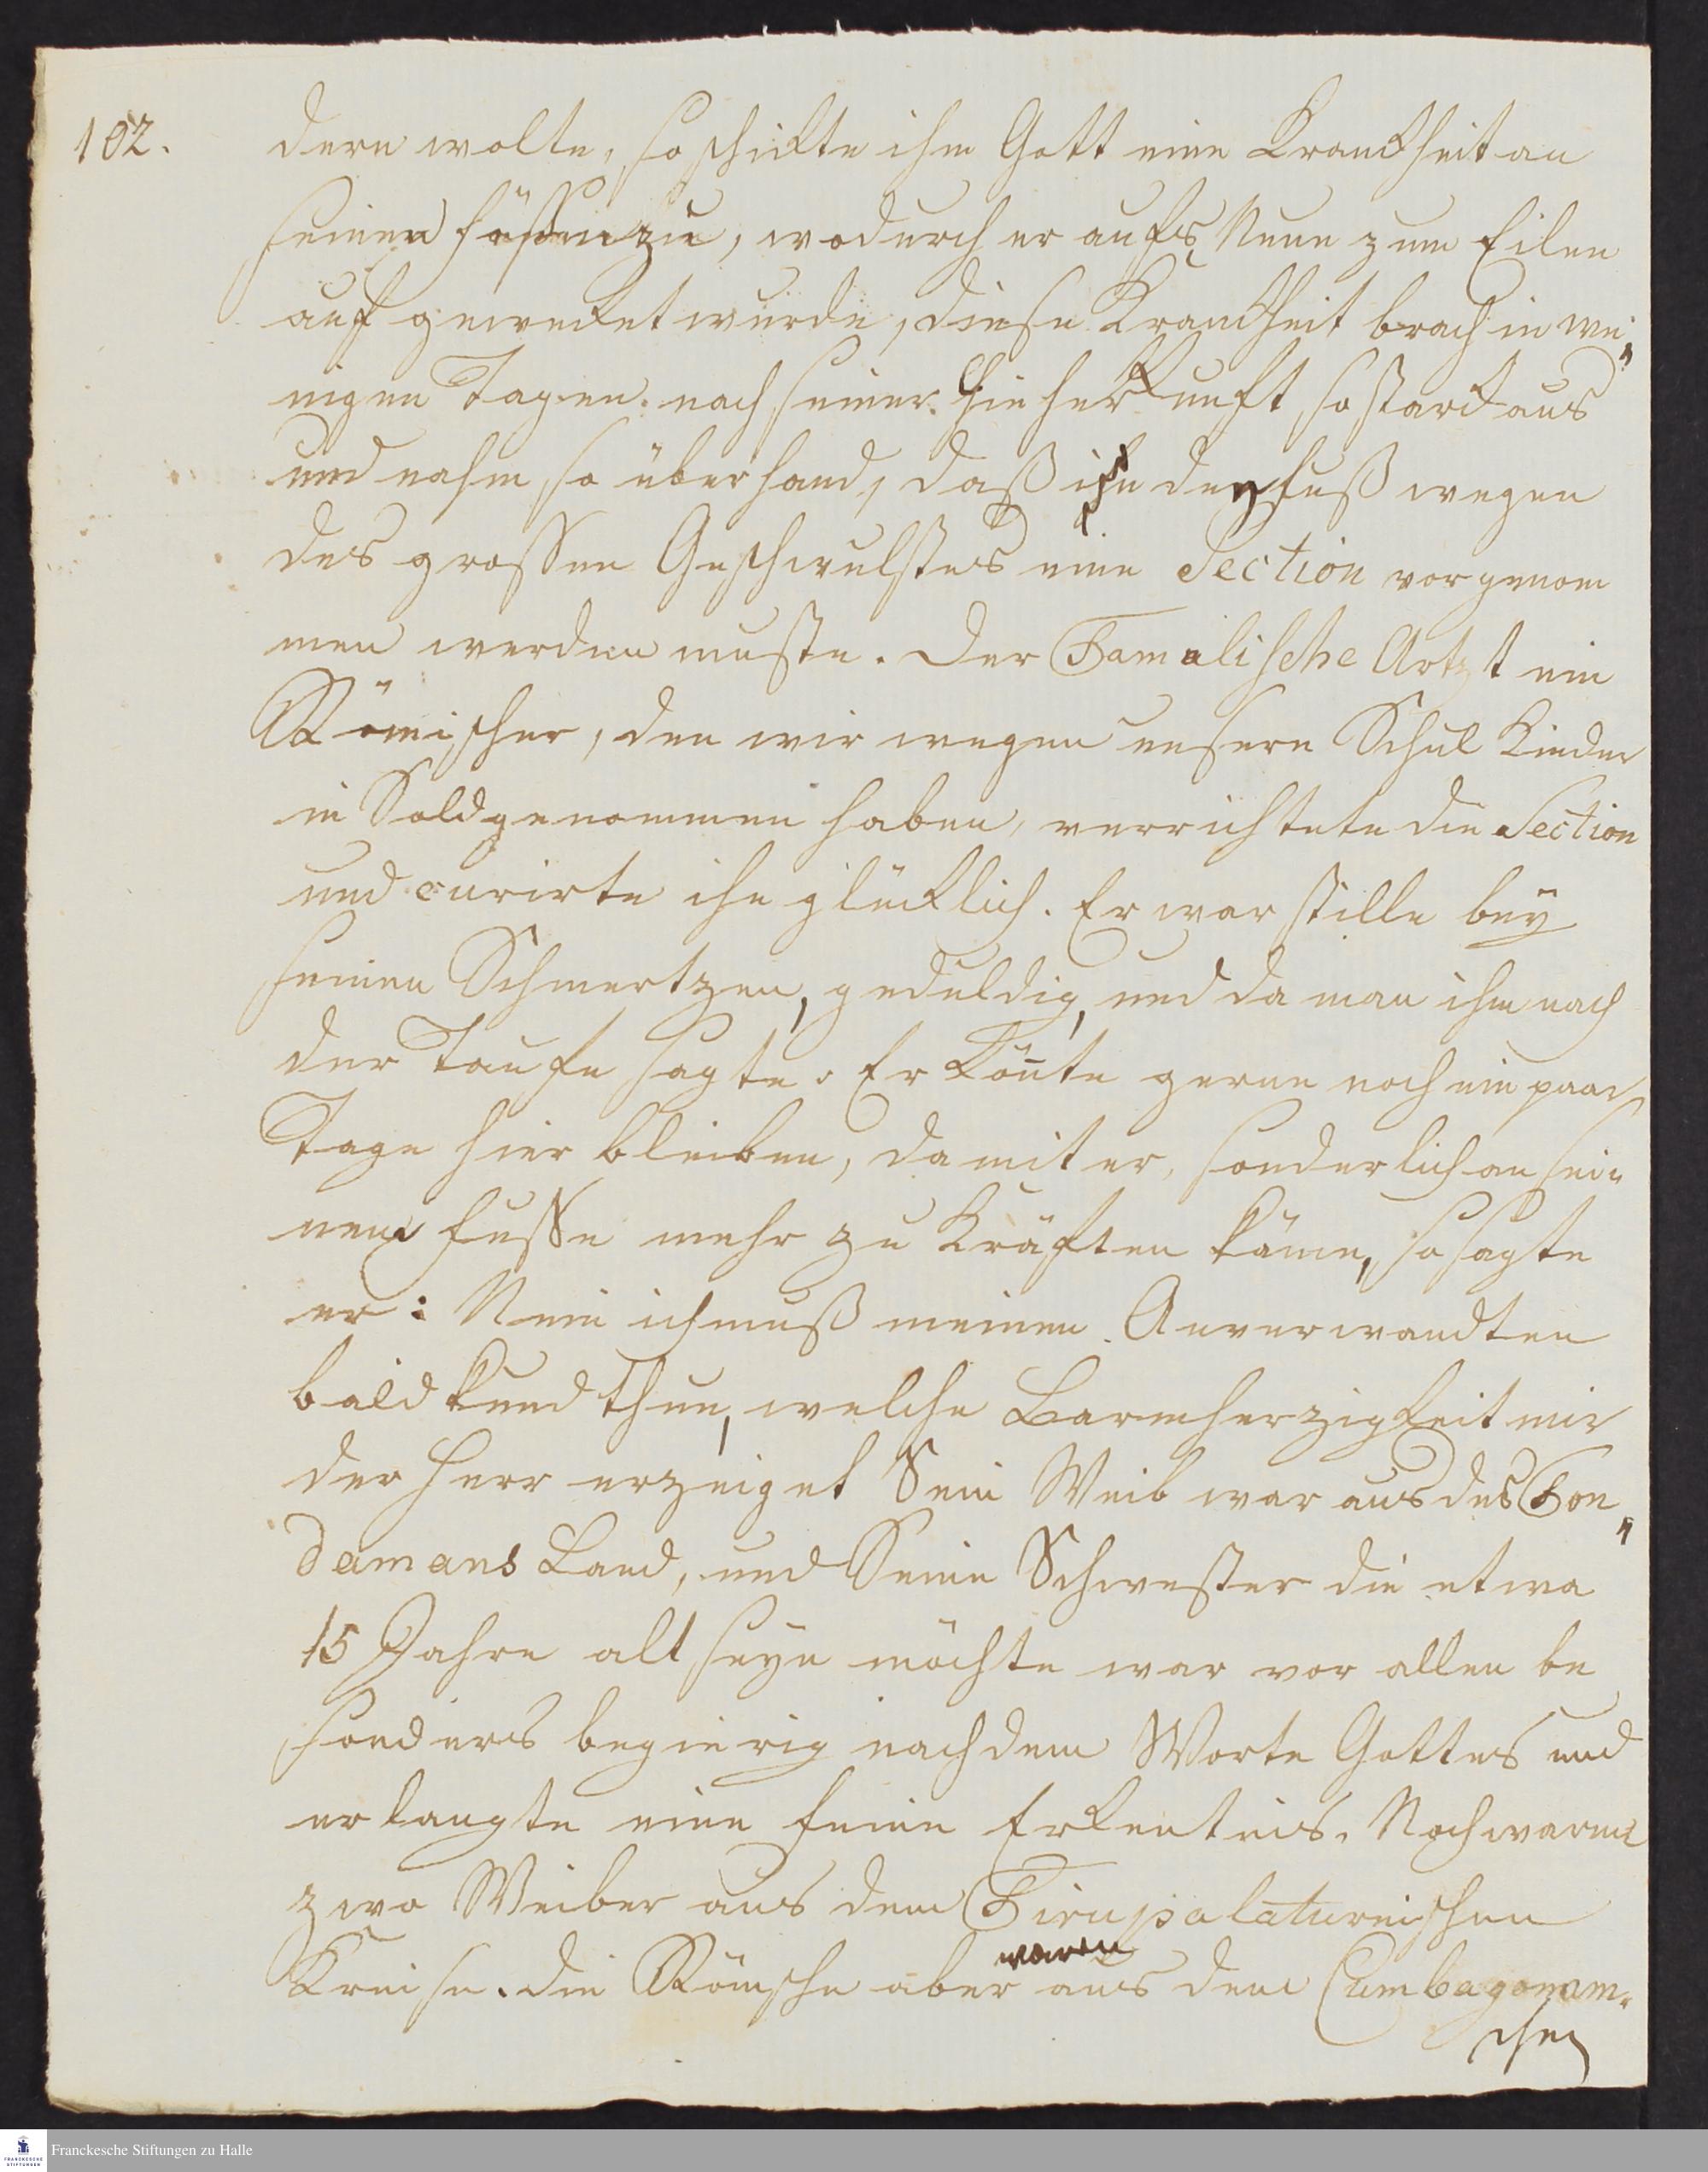 102.
dern wolte, so schikte ihm Gott eine Kranckheit an
seinen Füßen zu, wodurch er aufs Neue zum Eilen
auf gewecket wurde, diese Kranckheit brach in we„
nigen Tagen nach seiner Hieherkunft so starck aus
und nahm so überhand, daß in den Fuß wegen
des grossen Geschwulstes eine Section vorgenom
men werden muste. Der Tamulische Artzt ein
Römischer, den wir wegen unsern Schul Kinder
in Sold genommen haben, verrichtete die Section
und curirte ihn glücklich. Er war stille bey
seinen Schmertzen, geduldig, und da man ihm nach
der Taufe sagte: Er kön̅te gerne noch ein paar
Tage hier bleiben, damit er, sonderlich an sei„
nem Fusse mehr zu Kräften käme, so sagte
er: Nein ich muß meinen Anverwandten
bald kund thun, welche Barmherzigkeit mir
der Herr erzeiget Sein Weib war aus des Ton„
damans Land, und Seine Schwester die etwa
15 Jahre alt seyn möchte war vor allen be
sonders begierig nach dem Worte Gottes und
erlangte eine feine Erkentnis. Noch waren
zwo Weiber aus dem Tirupalatureischen
Kreise. Die Römsche aber waren aus dem Cumbagonam„
schen
Franckesche Stiftungen zu Halle